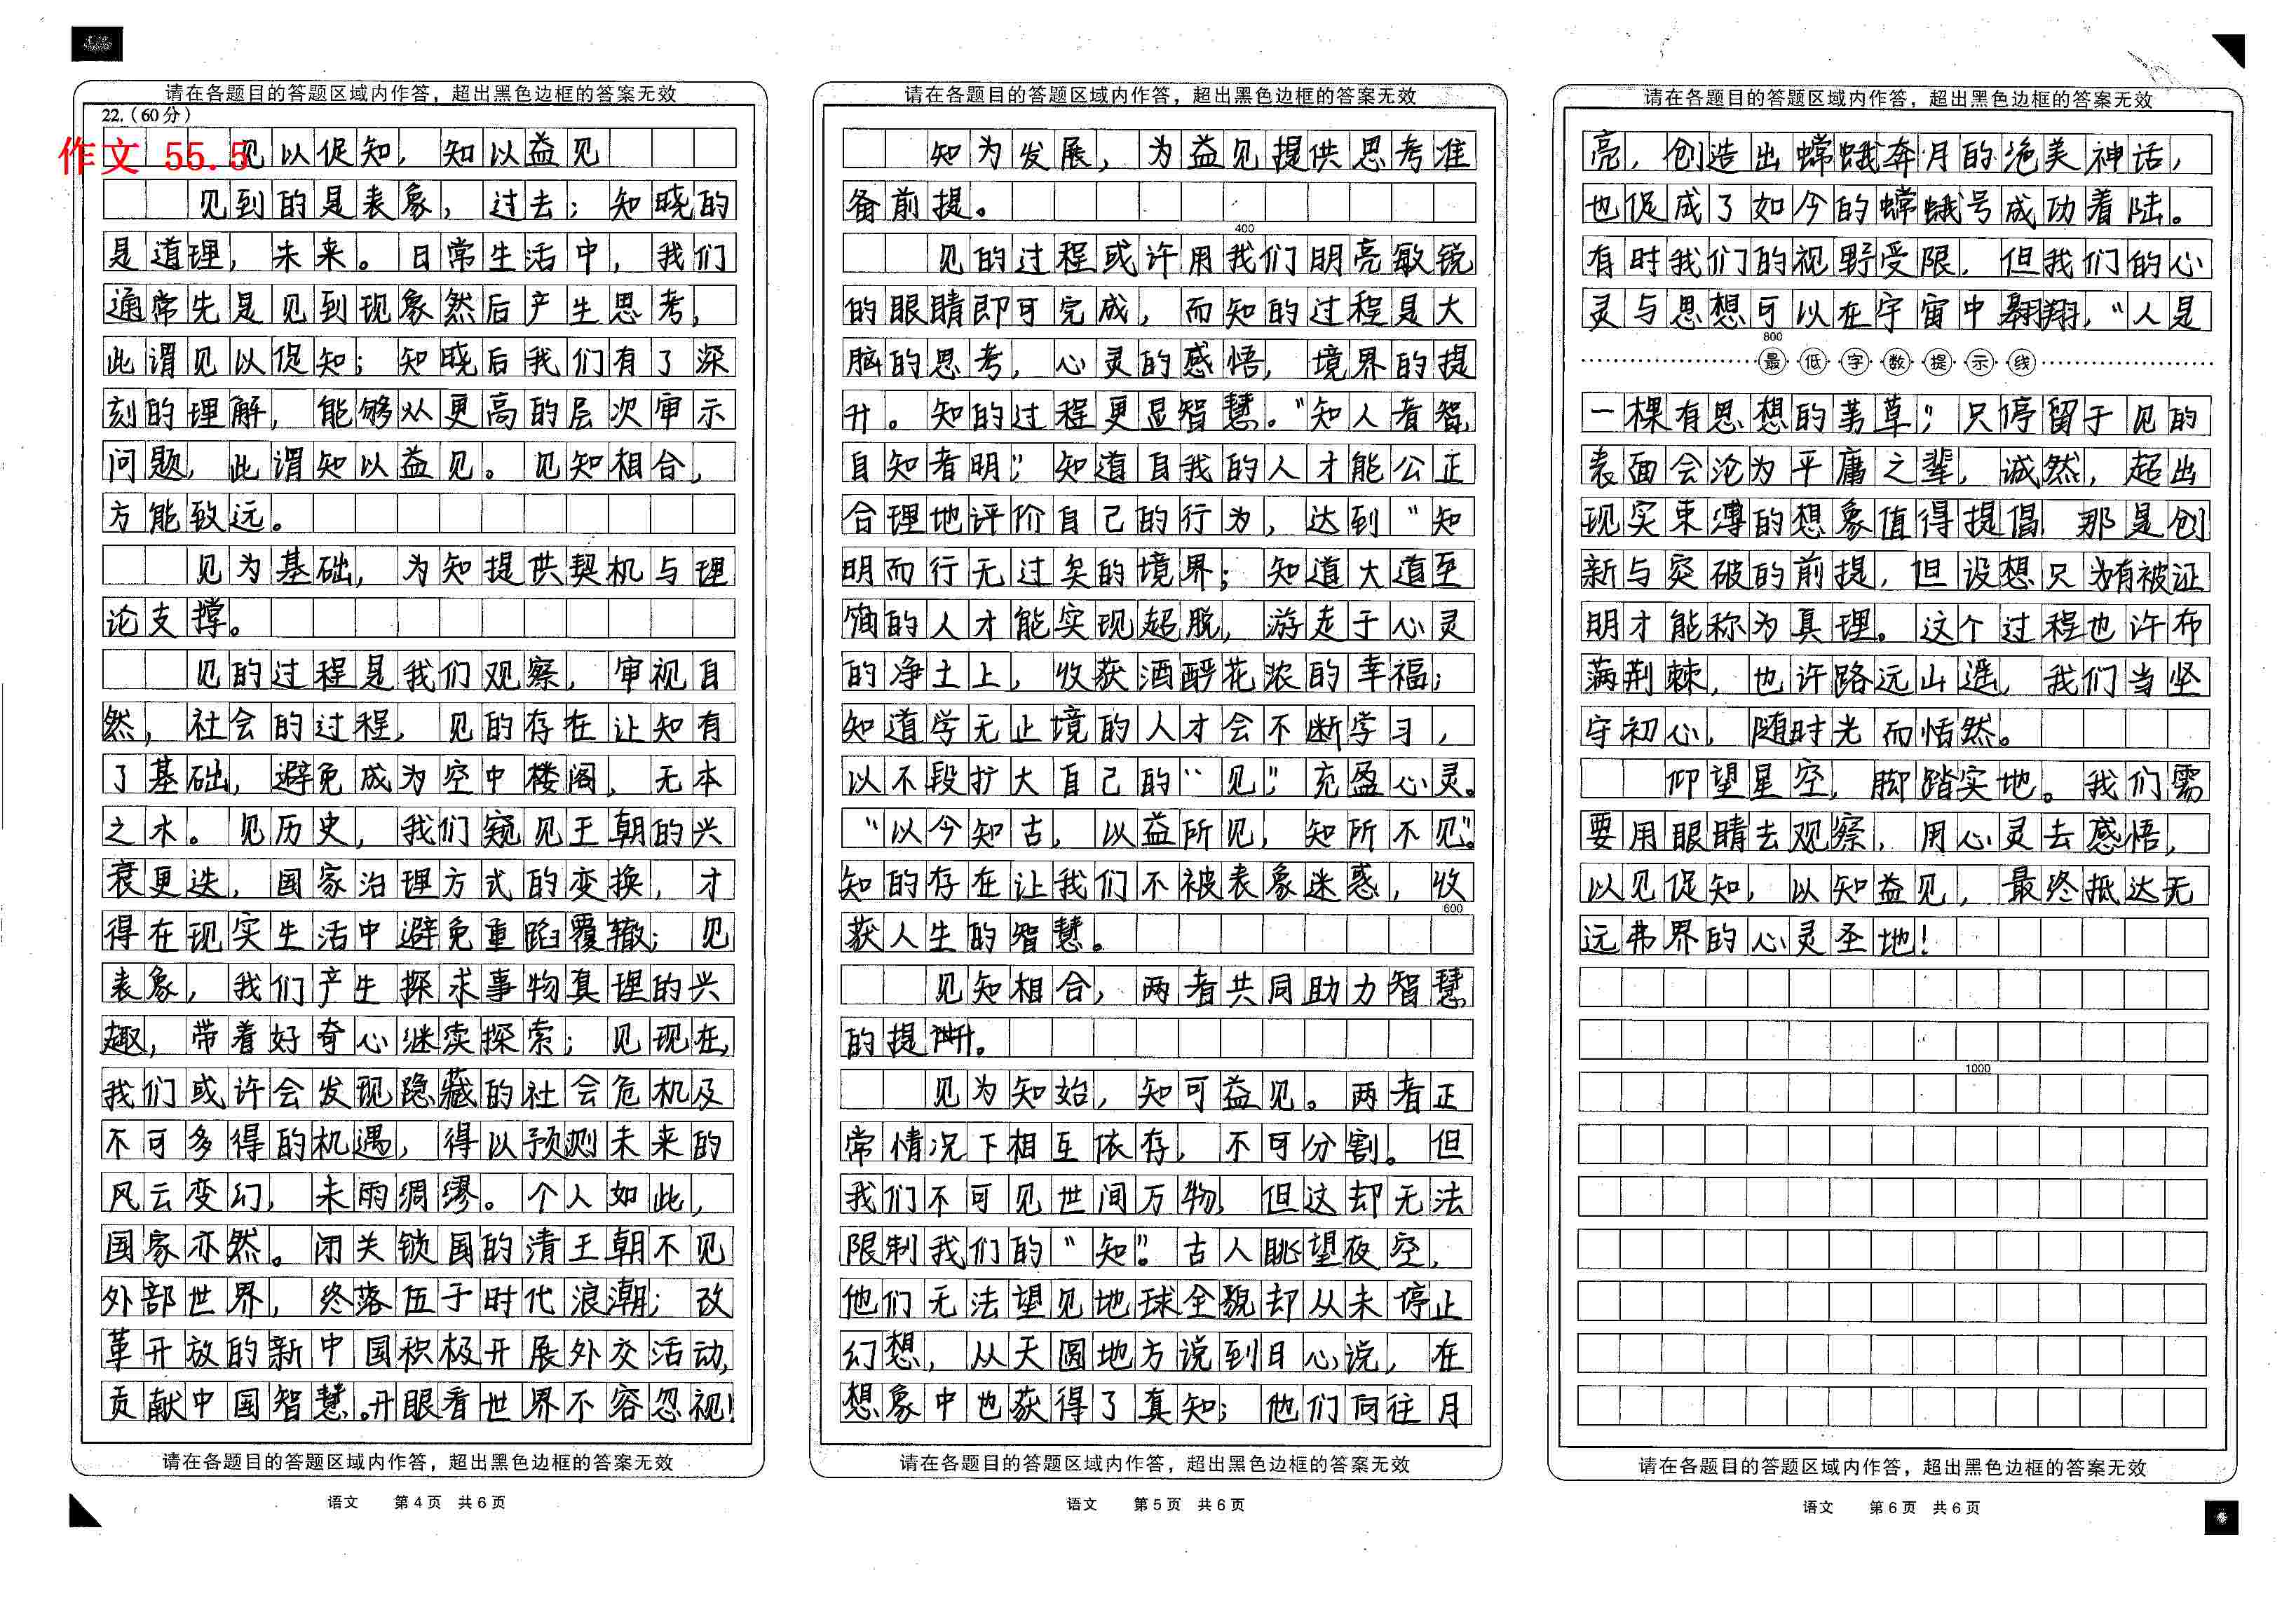 请在各题目的答题区域内作答，超出黑色边框的答案无效
22.（60分）
作文 55.5
见以促知，知以益见
见到的是表象，过去；知晓的
是道理，未来。日常生活中，我们
通常先是见到现象然后产生思考，
此谓见以促知；知晓后我们有了深
刻的理解，能够从更高的层次审示
问题，此谓知以益见。见知相合，
方能致远。
见为基础，为知提供契机与理
论支撑。
见的过程是我们观察，审视自
然，社会的过程，见的存在让知有
了基础，避免成为空中楼阁，无本
之木。见历史，我们窥见王朝的兴
衰更迭，国家治理方式的变换，才
得在现实生活中避免重蹈覆辙；见
表象，我们产生探求事物真理的兴
趣，带着好奇心继续探索；见现在，
我们或许会发现隐藏的社会危机及
不可多得的机遇，得以预测未来的
风云变幻，未雨绸缪。个人如此，
国家亦然。闭关锁国的清王朝不见
外部世界，终落伍于时代浪潮；改
革开放的新中国积极开展外交活动，
贡献中国智慧。开眼看世界不容忽视！
请在各题目的答题区域内作答，超出黑色边框的答案无效
语文 第4页 共6页
请在各题目的答题区域内作答，超出黑色边框的答案无效
知为发展，为益见提供思考准
备前提。
400
见的过程或许用我们明亮敏锐
的眼睛即可完成，而知的过程是大
脑的思考，心灵的感悟，境界的提
升。知的过程更显智慧。“知人者智，
自知者明”，知道自我的人才能公正
合理地评价自己的行为，达到“知
明而行无过矣的境界；知道大道至
简的人才能实现超脱，游走于心灵
的净土上，收获酒酽花浓的幸福；
知道学无止境的人才会不断学习，
以不段扩大自己的“见”，充盈心灵。
“以今知古，以益所见，知所不见”。
知的存在让我们不被表象迷惑，收
600
获人生的智慧。
见知相合，两者共同助力智慧
的提升。
见为知始，知可益见。两者正
常情况下相互依存，不可分割。但
我们不可见世间万物，但这却无法
限制我们的“知”。古人眺望夜空，
他们无法望见地球全貌却从未停止
幻想，从天圆地方说到日心说，在
想象中也获得了真知；他们向往月
请在各题目的答题区域内作答，超出黑色边框的答案无效
语文 第5页 共6页
请在各题目的答题区域内作答，超出黑色边框的答案无效
亮，创造出嫦娥奔月的绝美神话，
也促成了如今的嫦娥号成功着陆。
有时我们的视野受限，但我们的心
灵与思想可以在宇宙中翱翔，“人是
800
最低字数提示线
一棵有思想的苇草”，只停留于见的
表面会沦为平庸之辈，诚然，超出
现实束缚的想象值得提倡，那是创
新与突破的前提，但设想只有被证
明才能称为真理。这个过程也许布
满荆棘，也许路远山遥，我们当坚
守初心，随时光而恬然。
仰望星空，脚踏实地。我们需
要用眼睛去观察，用心灵去感悟，
以见促知，以知益见，最终抵达无
远弗界的心灵圣地！
1000
请在各题目的答题区域内作答，超出黑色边框的答案无效
语文 第6页 共6页